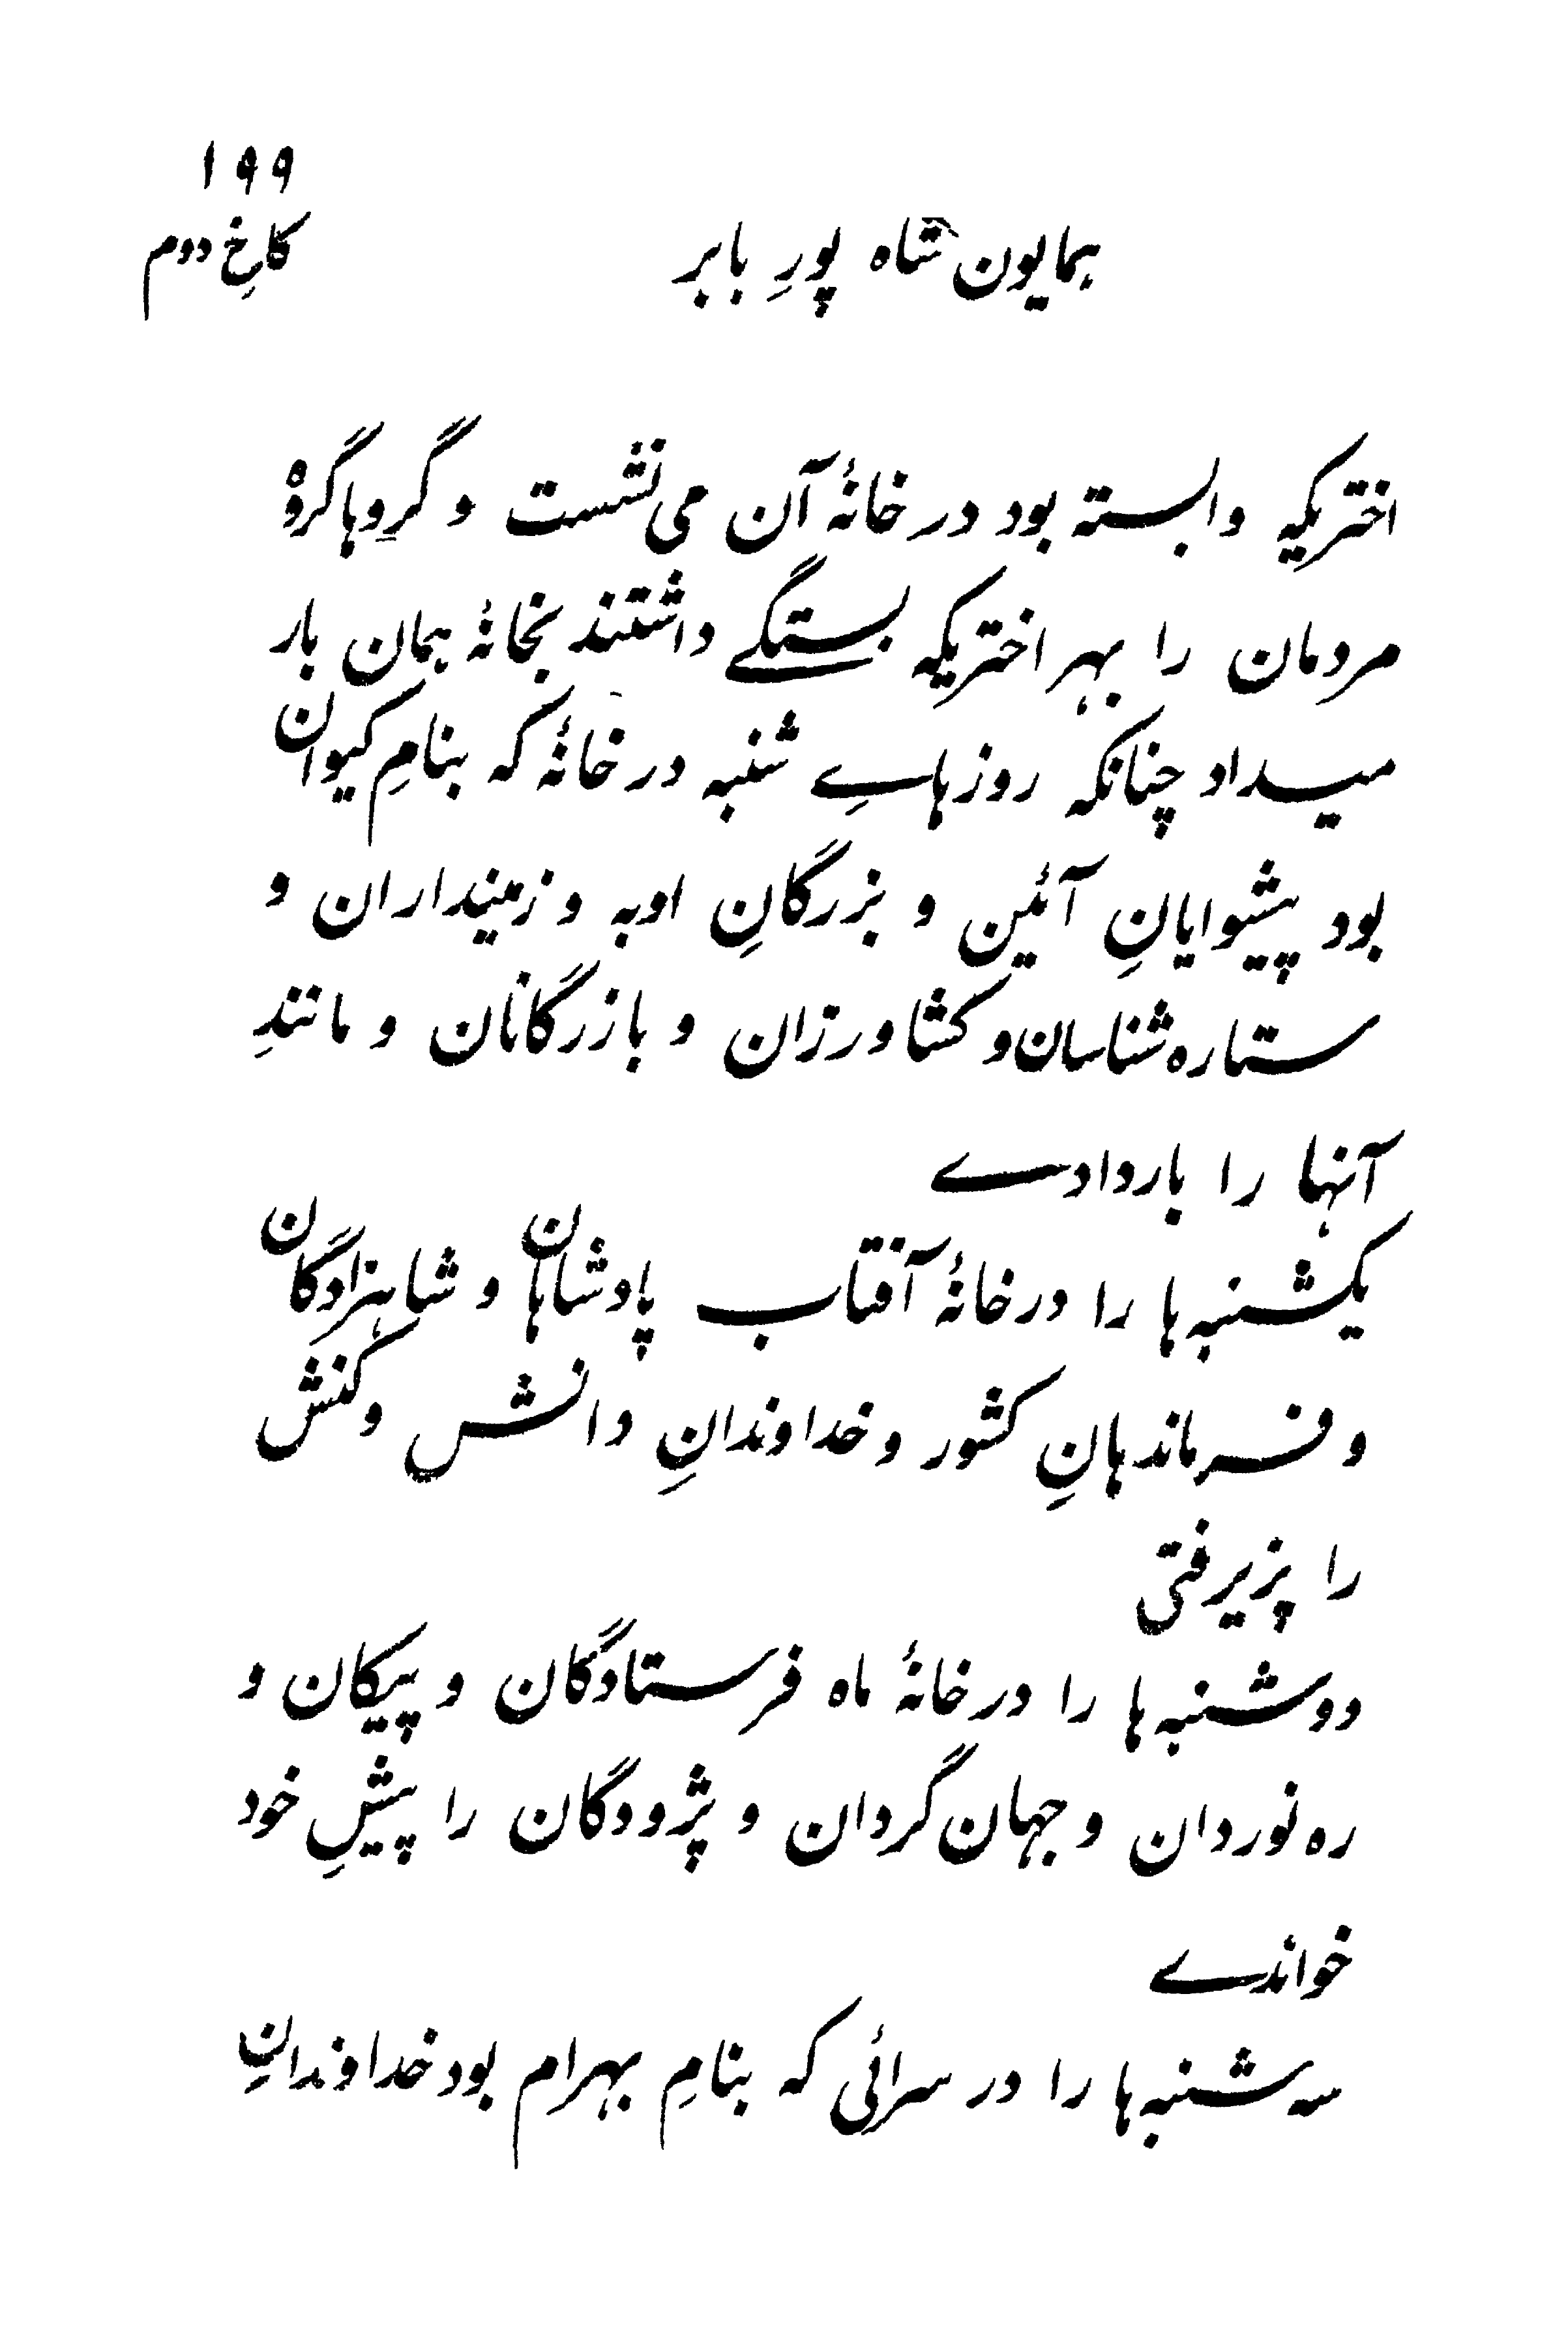 ۱۹۹
همایون شاه پورِ بابر
کاخِ دوم
اختریکه وابسته بود در خانهٔ آن می نشست و گروهاگروه
مردمان را بهر اختریکه بستگے داشتند بخانهٔ همان بار
میداد چنانکه روزهاے شنبه در خانهٔ که بنامِ کیوان
بود پیشوایانِ آئین و بزرگانِ اوبه و زمینداران و
ستاره شناسان و کشاورزان و بازرگانان و مانندِ
آنها را باردادے
یکشنبه ها را در خانهٔ آفتاب پادشاهان و شاهزادگان
و فرماندهانِ کشور و خداوندانِ دانش و کنش
را پزیرفتی
دوشنبه ها را در خانهٔ ماه فرستادگان و پیکان و
ره نوردان و جهان گردان و پژودگان را پیشِ خود
خواندے
سه شنبه ها را در سرائی که بنامِ بهرام بود خداوندانِ